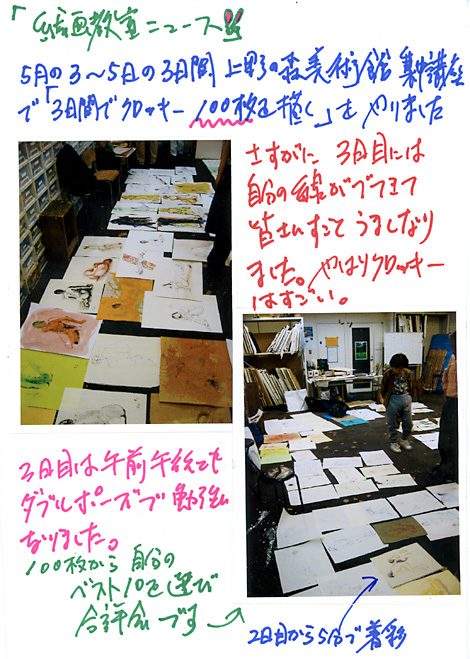 「絵画教室ニュース」
5月の3〜5日の3日間 上野の森美術館 集中講座
で「3日間でクロッキー 100枚を描く」を やりました
さすがに 3日目には
自分の線がでてきて
皆さんすごく うまくなり
ました。やはりクロッキー
はすごい。
3日目は午前午後とも
ダブルポーズで勉強に
なりました。
100枚から 自分の
ベスト10を選び
合評会です
2日目から5分で着彩